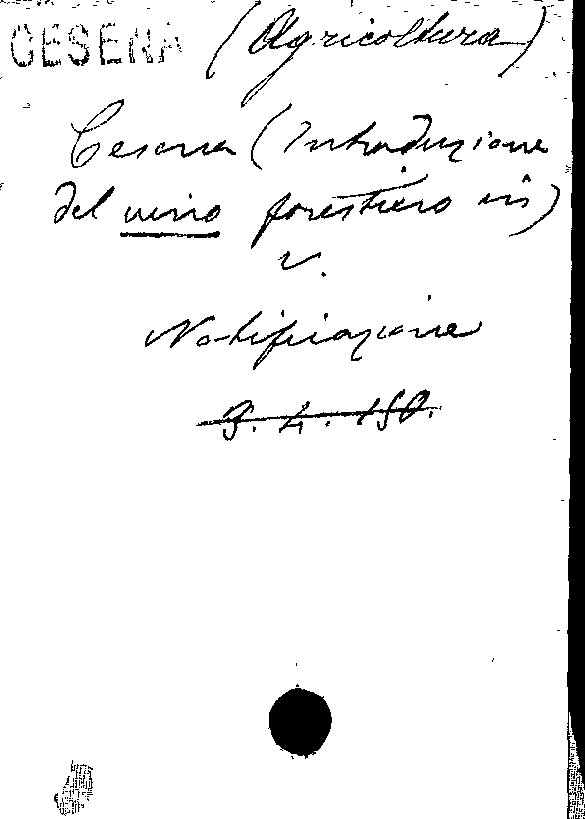 CESENA (Agricoltura)
Cesena (Introduzione
del vino forestiero in)
V.
Notificazione
3. 4. 150.